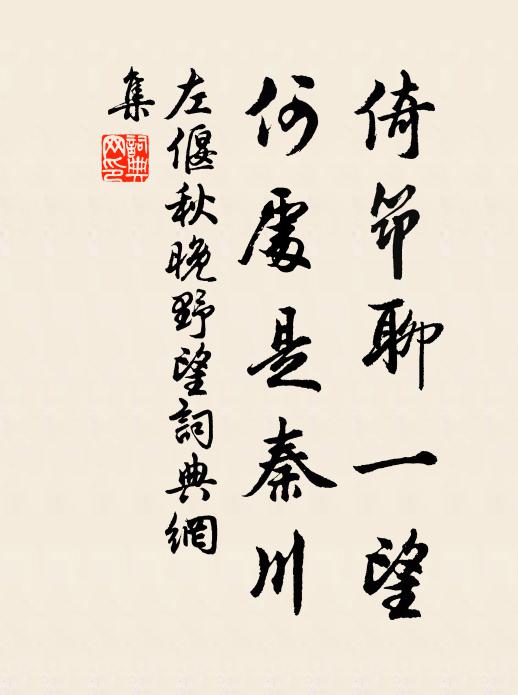 倚筇聊一望
何處是秦川
左偃秋晚野望詞典網
集
詞典網印